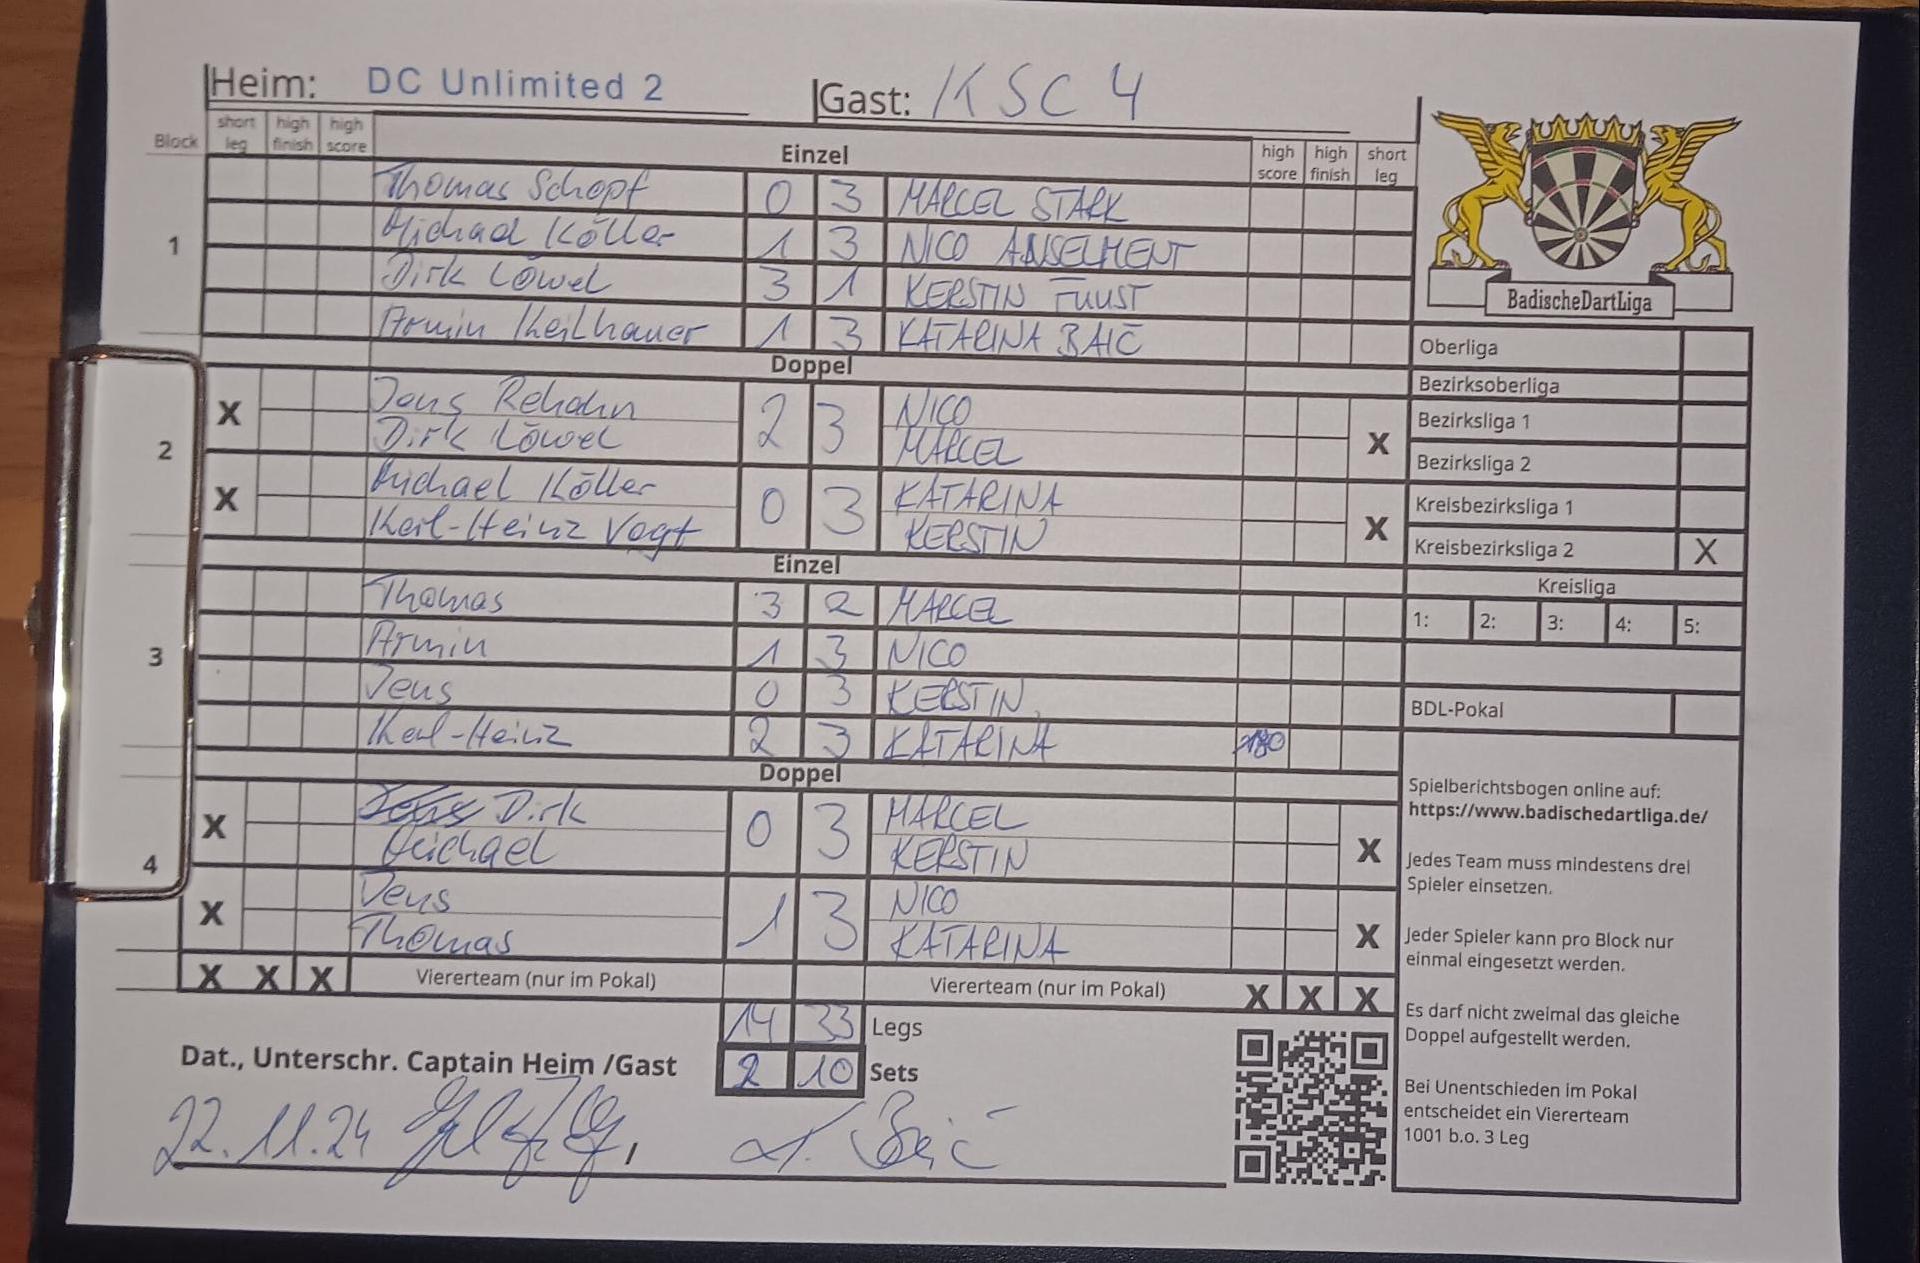 Heim: DC Unlimited 2 Gast: KSC 4
Block short leg high finish high score Einzel high score high finish short leg
1
Thomas Schopf 0 3 MARCEL STARK
Michael Köller 1 3 NICO ANSELMENT
Dirk Löwel 3 1 KERSTIN FUUST
Armin Keilhauer 1 3 KATARINA BAIĆ
Doppel
2
X Jens Rehahn 2 3 NICO X
Dirk Löwel MARCEL
X Michael Köller 0 3 KATARINA X
Karl-Heinz Vogt KERSTIN
Einzel
3
Thomas 3 2 MARCEL
Armin 1 3 NICO
Jens 0 3 KERSTIN
Karl-Heinz 2 3 KATARINA 180
Doppel
4
X Dirk 0 3 MARCEL X
Michael KERSTIN
X Jens 1 3 NICO X
Thomas KATARINA
X X X Vierерteam (nur im Pokal) Viererteam (nur im Pokal) X X X
14 33 Legs
2 10 Sets
Dat., Unterschr. Captain Heim /Gast
22.11.24
BadischeDartLiga
Oberliga
Bezirksoberliga
Bezirksliga 1
Bezirksliga 2
Kreisbezirksliga 1
Kreisbezirksliga 2 X
Kreisliga
1: 2: 3: 4: 5:
BDL-Pokal
Spielberichtsbogen online auf:
https://www.badischedartliga.de/
Jedes Team muss mindestens drei
Spieler einsetzen.
Jeder Spieler kann pro Block nur
einmal eingesetzt werden.
Es darf nicht zweimal das gleiche
Doppel aufgestellt werden.
Bei Unentschieden im Pokal
entscheidet ein Viererteam
1001 b.o. 3 Leg